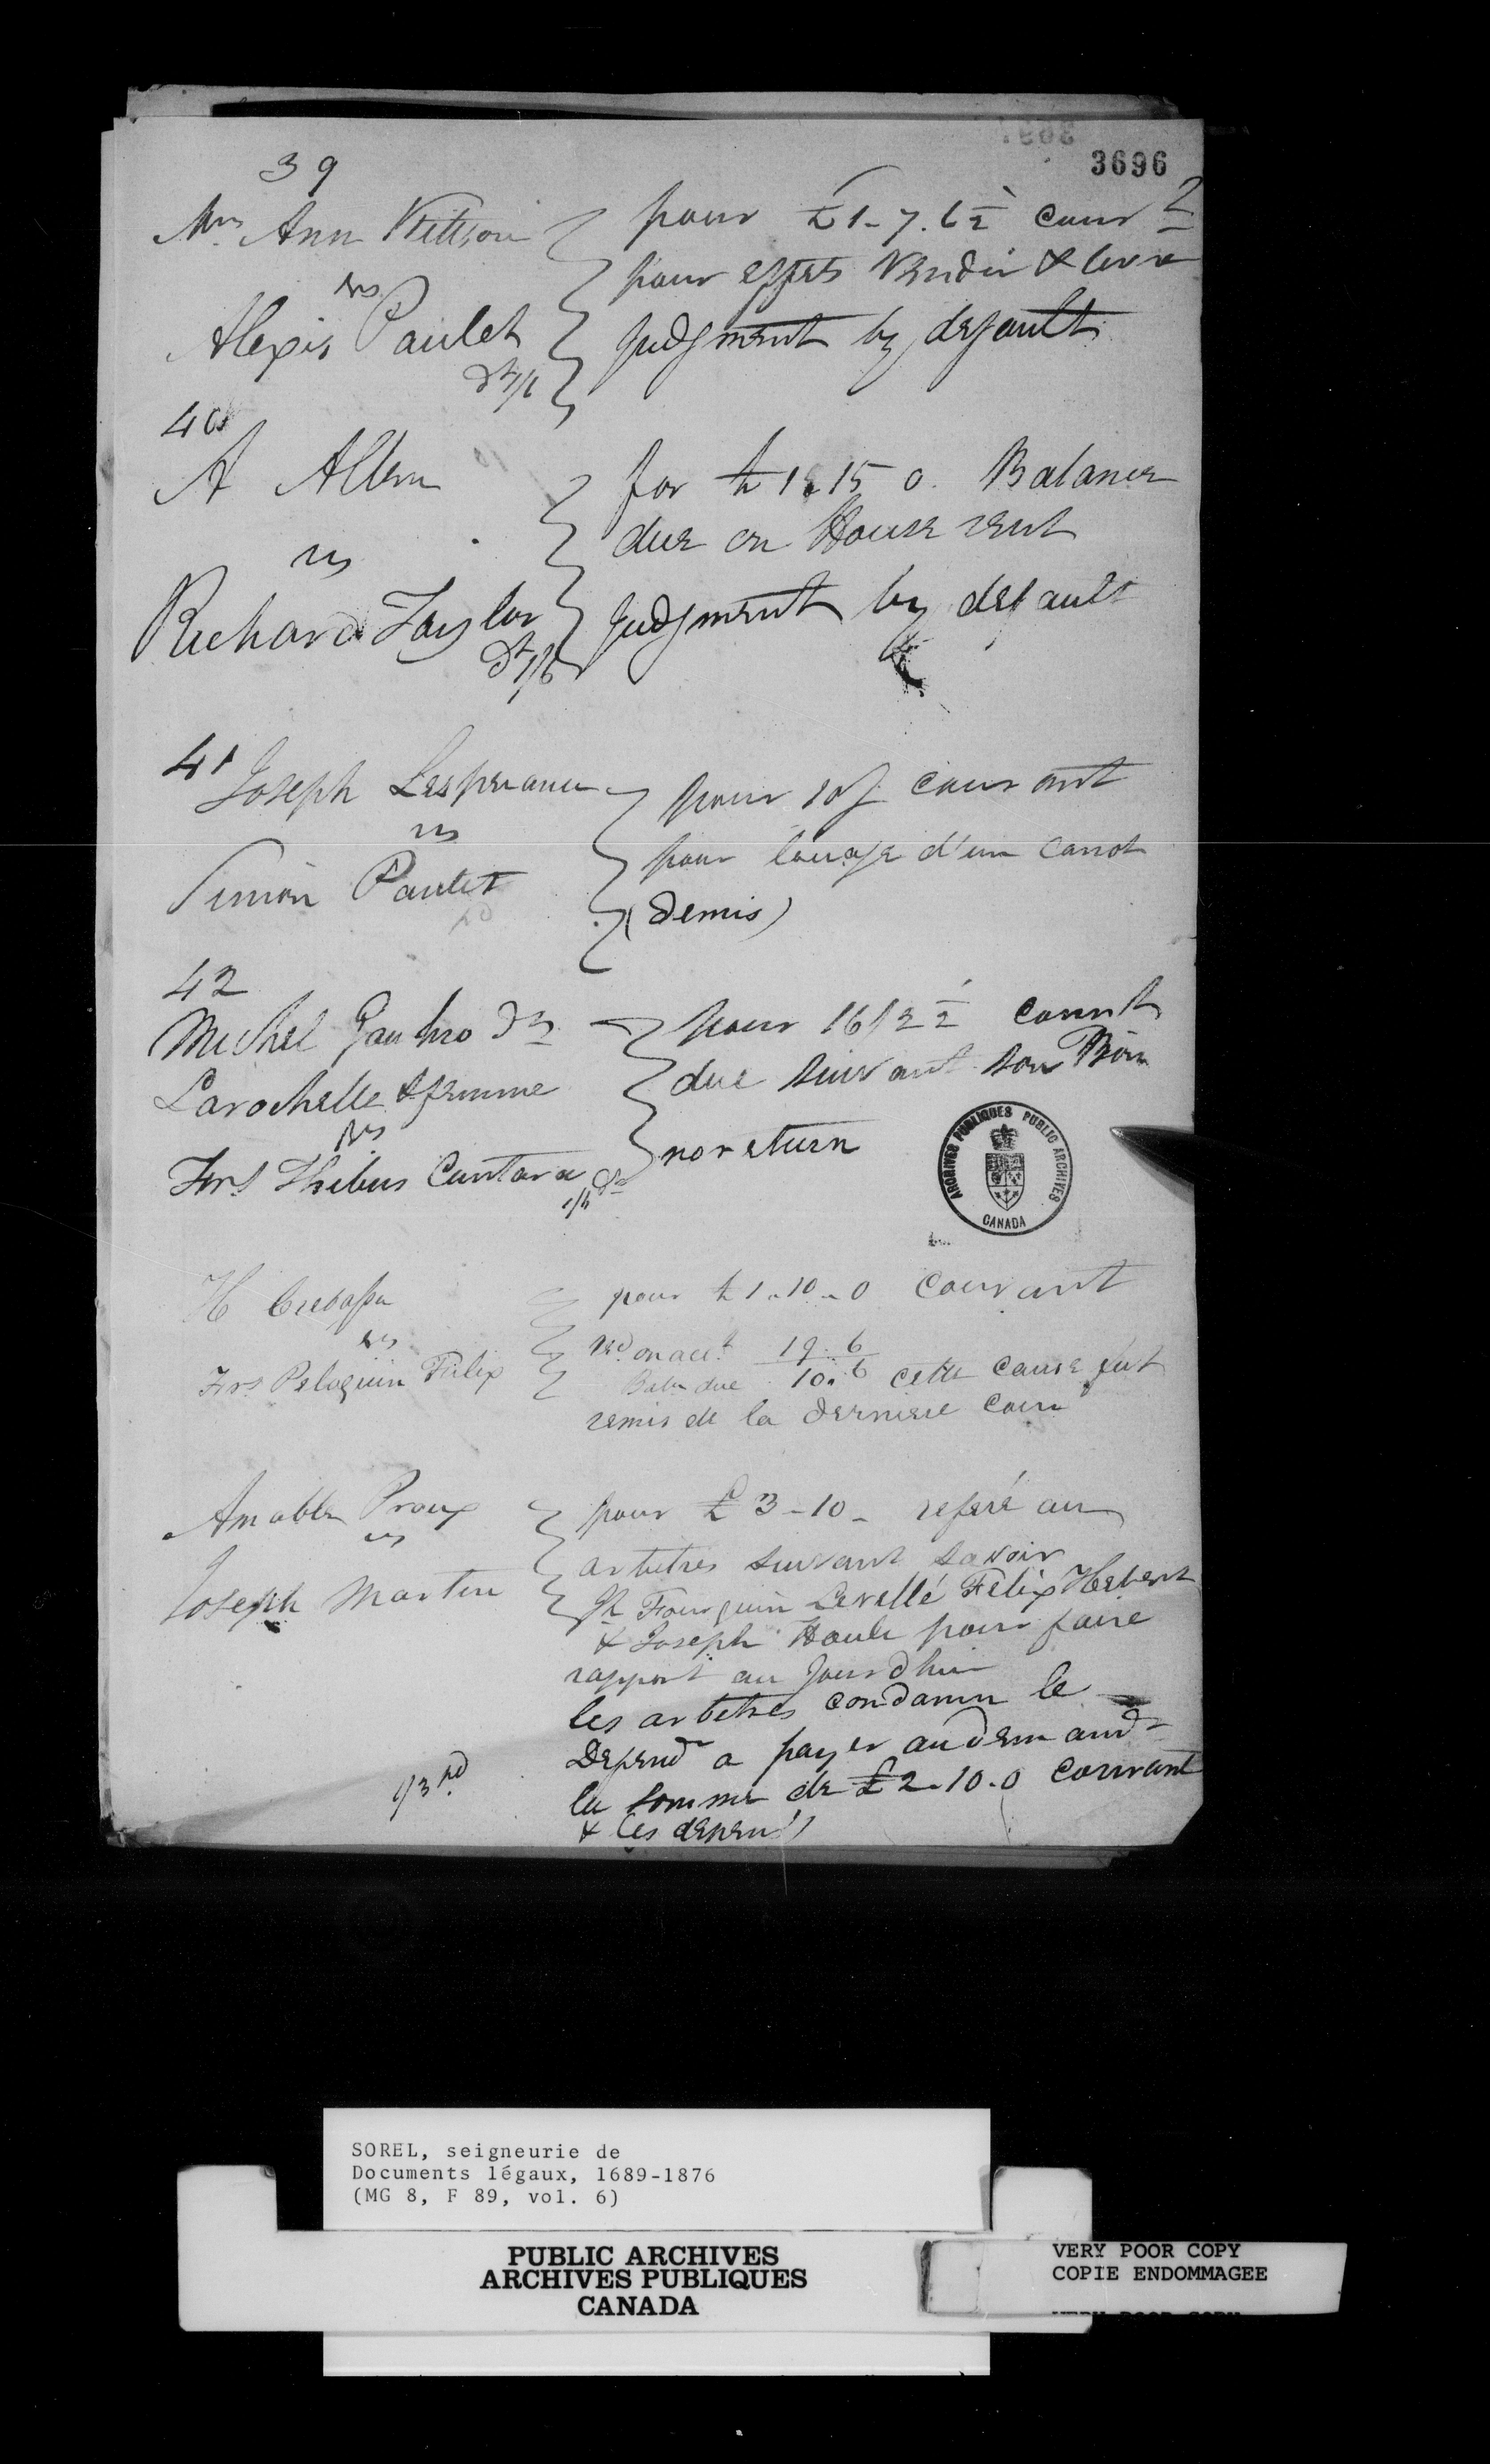 3696
39
Mrs Ann Kittson
vs
Alexis Paulet
pour £1-7.6½
pour effets Vendu & livre
Judgment by default
40
A Allen
vs
Richard Taylor
for £1.15 0. Balance
due on House rent
Judgment by default
41
Joseph Lesperance
vs
Simon Paulet
pour 10/ courant
pour louage d'un canot
(demis)
42
Michel Gauthro dt
Larochelle & femme
vs
Frs Thibus Cantara
pour 16/3½ cournt
due suivant son Bon
no return
ARCHIVES PUBLIQUES PUBLIC ARCHIVES
CANADA
H Crebassa
vs
Frs Peloquin Felix
pour £1.10.0 Courant
recd on acct 19.6
Balce due 10.6 cette cause fut
remis de la derniere Cour
Amable Proux
vs
Joseph Martin
pour £3-10- referé aux
arbitres suivant savoir
Fourquin Levellé Felix Hebert
& Joseph Houle pour faire
rapport au Jourdhui
les arbitres condamn le
Defendr a payer au demandr
la somme de £2.10.0 courant
& les depens
SOREL, seigneurie de
Documents légaux, 1689-1876
(MG 8, F 89, vol. 6)
PUBLIC ARCHIVES
ARCHIVES PUBLIQUES
CANADA
VERY POOR COPY
COPIE ENDOMMAGEE
VERY POOR COPY